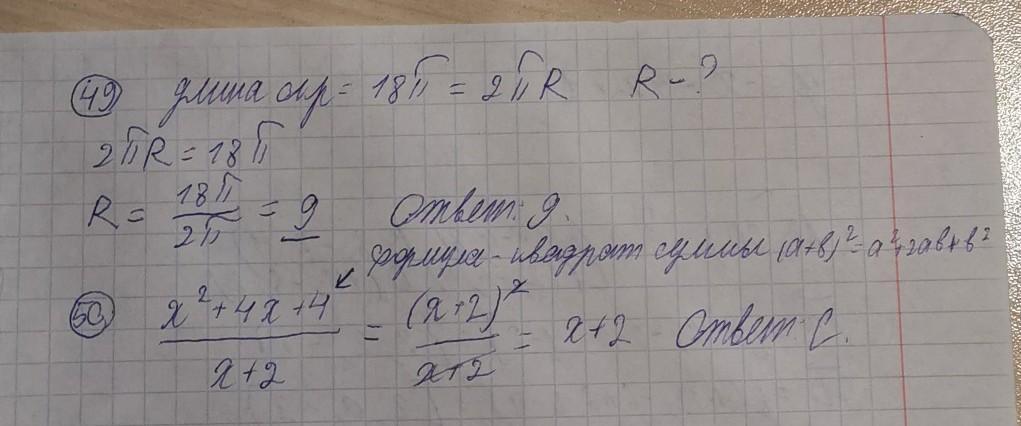 49 длина окр = 18π = 2πR R - ?
2πR = 18π
R = 18π/2π = 9 Ответ: 9.
формула - квадрат суммы (a+b)² = a²+2ab+b²
50 x²+4x+4/x+2 = (x+2)²/x+2 = x+2 Ответ: C.